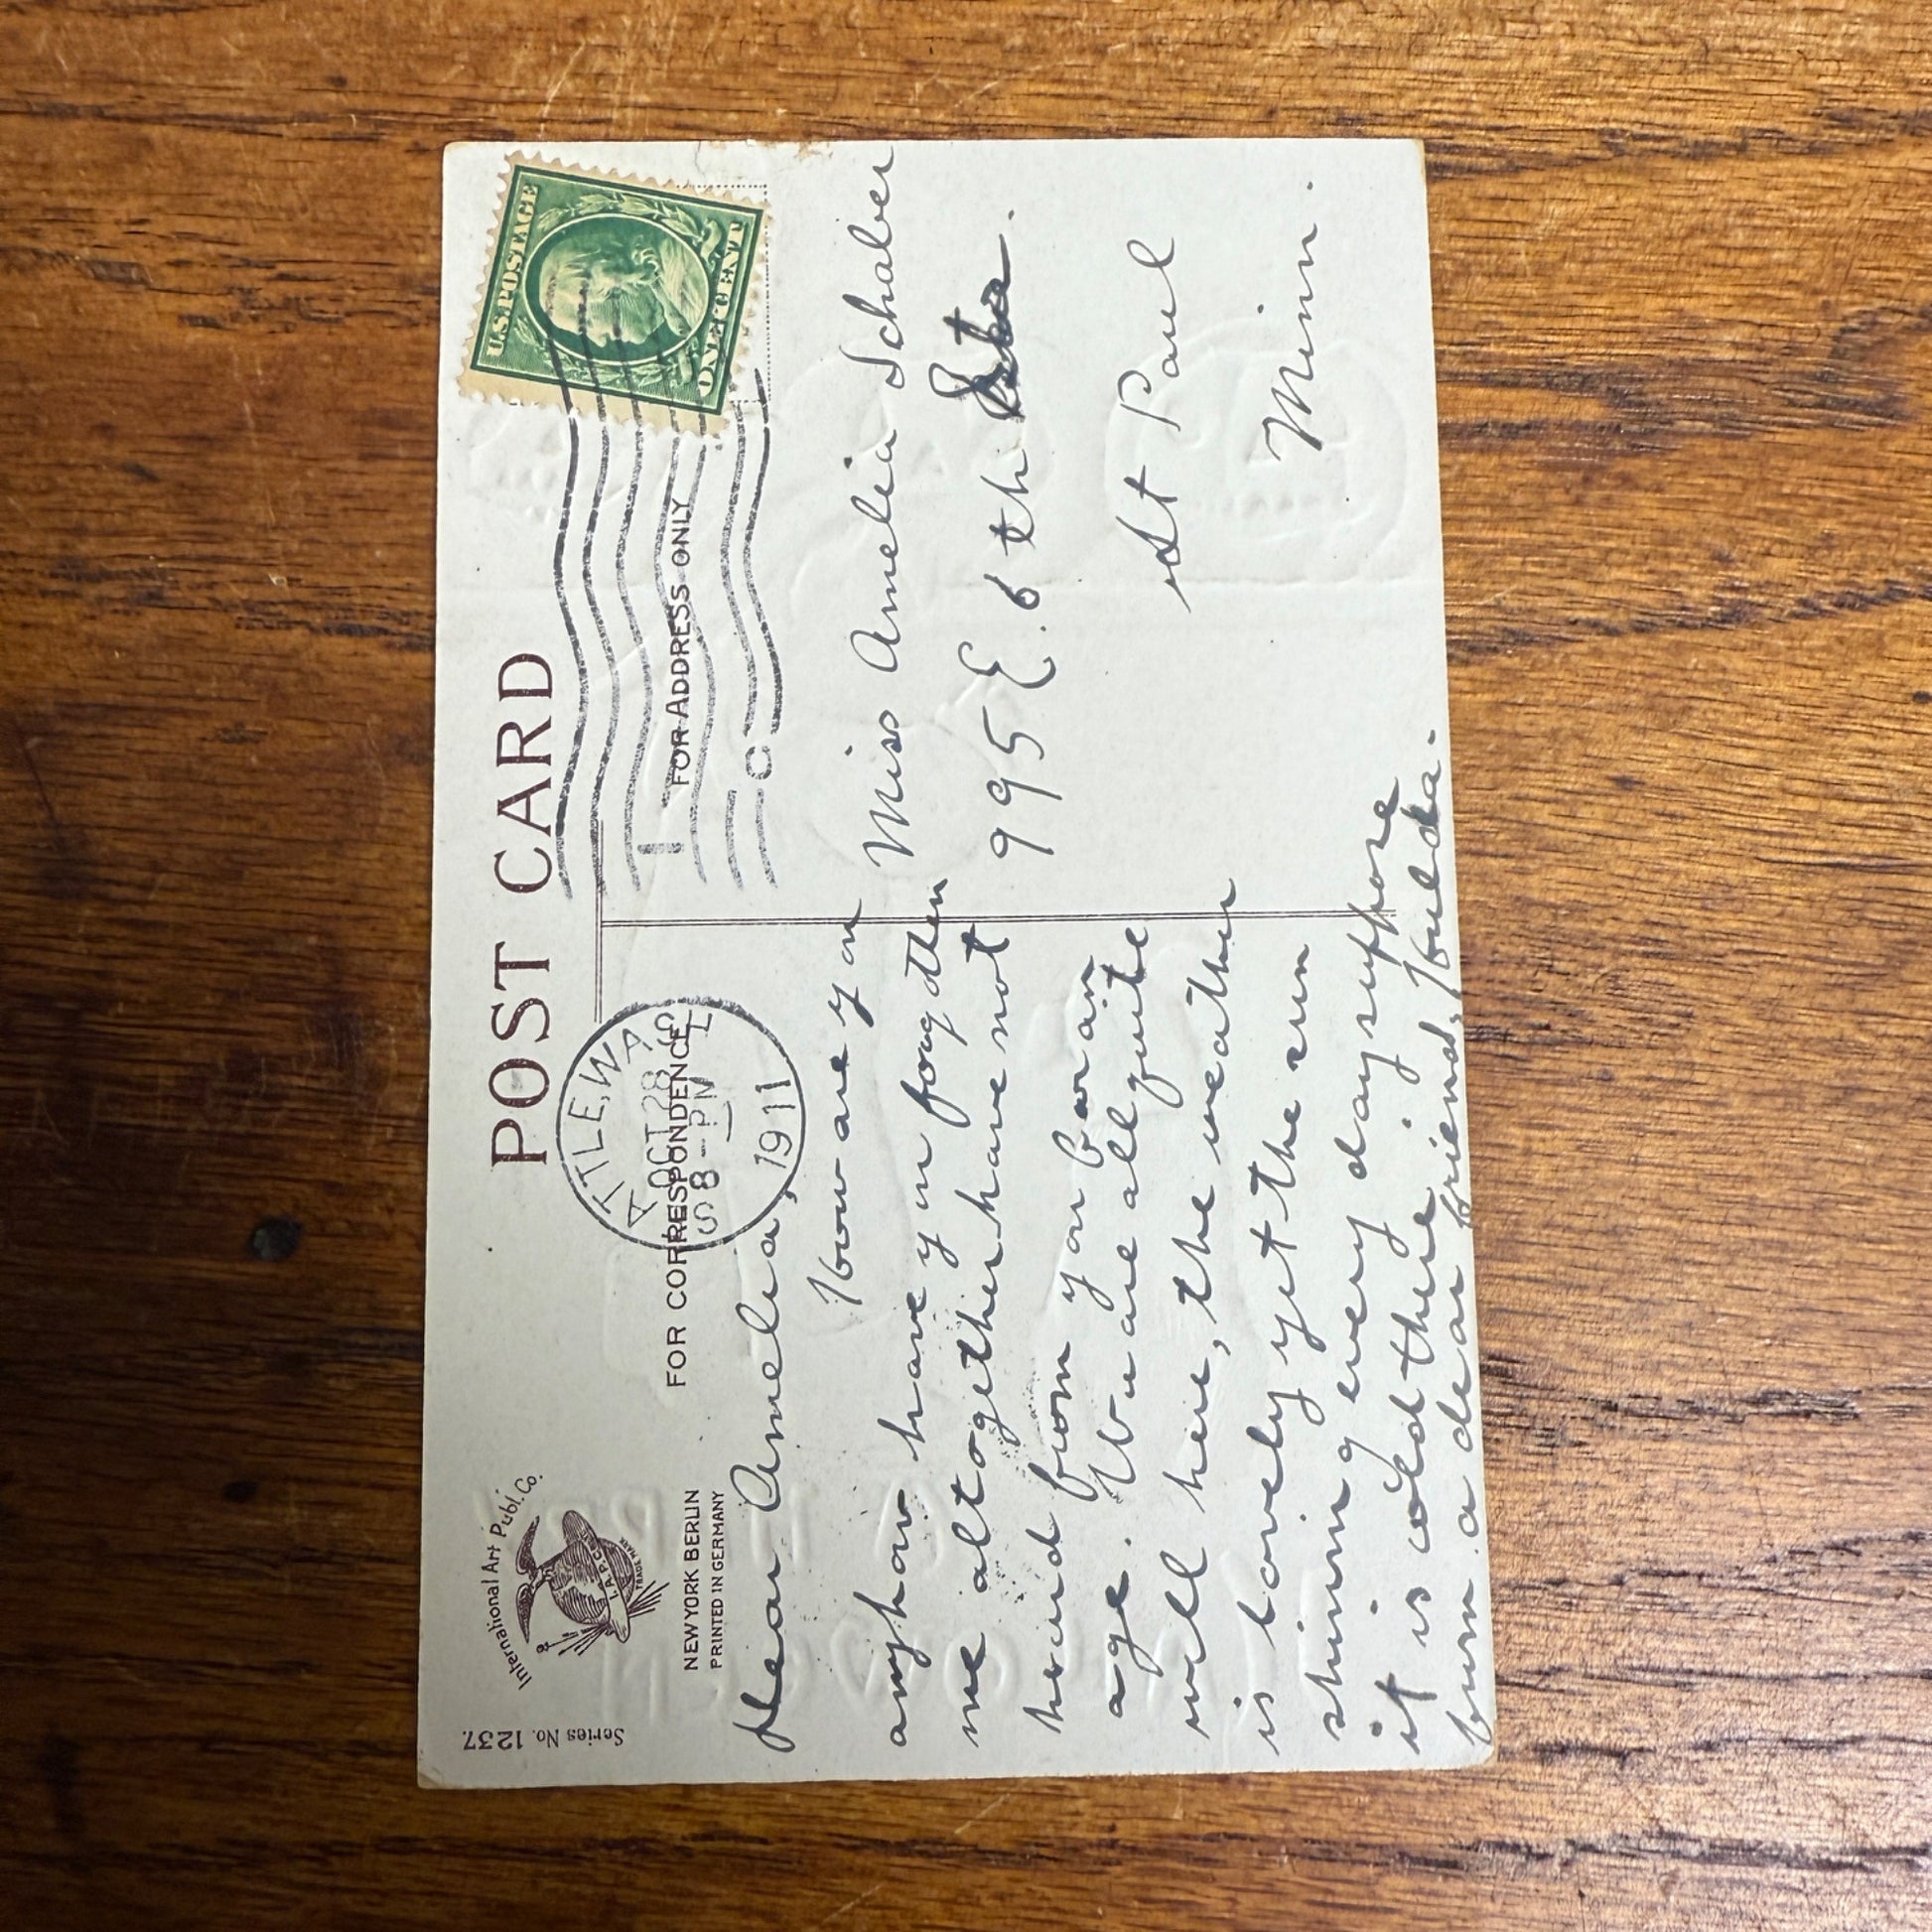 Series No. 1237.
International Art Publ. Co.
I. A. P. C.
TRADE MARK
NEW YORK BERLIN
PRINTED IN GERMANY
POST CARD
FOR CORRESPONDENCE
FOR ADDRESS ONLY
ATTLE, WA
OCT 28
8 - PM
1911
1
C
U.S. POSTAGE
ONE CENT
Dear Amelia,
How are you
anyhow have you forgotten
me altogether have not
heard from you for an
age. We are all quite
well here, the weather
is lovely yet the sun
shining every day suppose
it is cold there.
from a dear friend, Hulda.
Miss Amelia Schaber
995 E. 6th
St Paul
Minn.